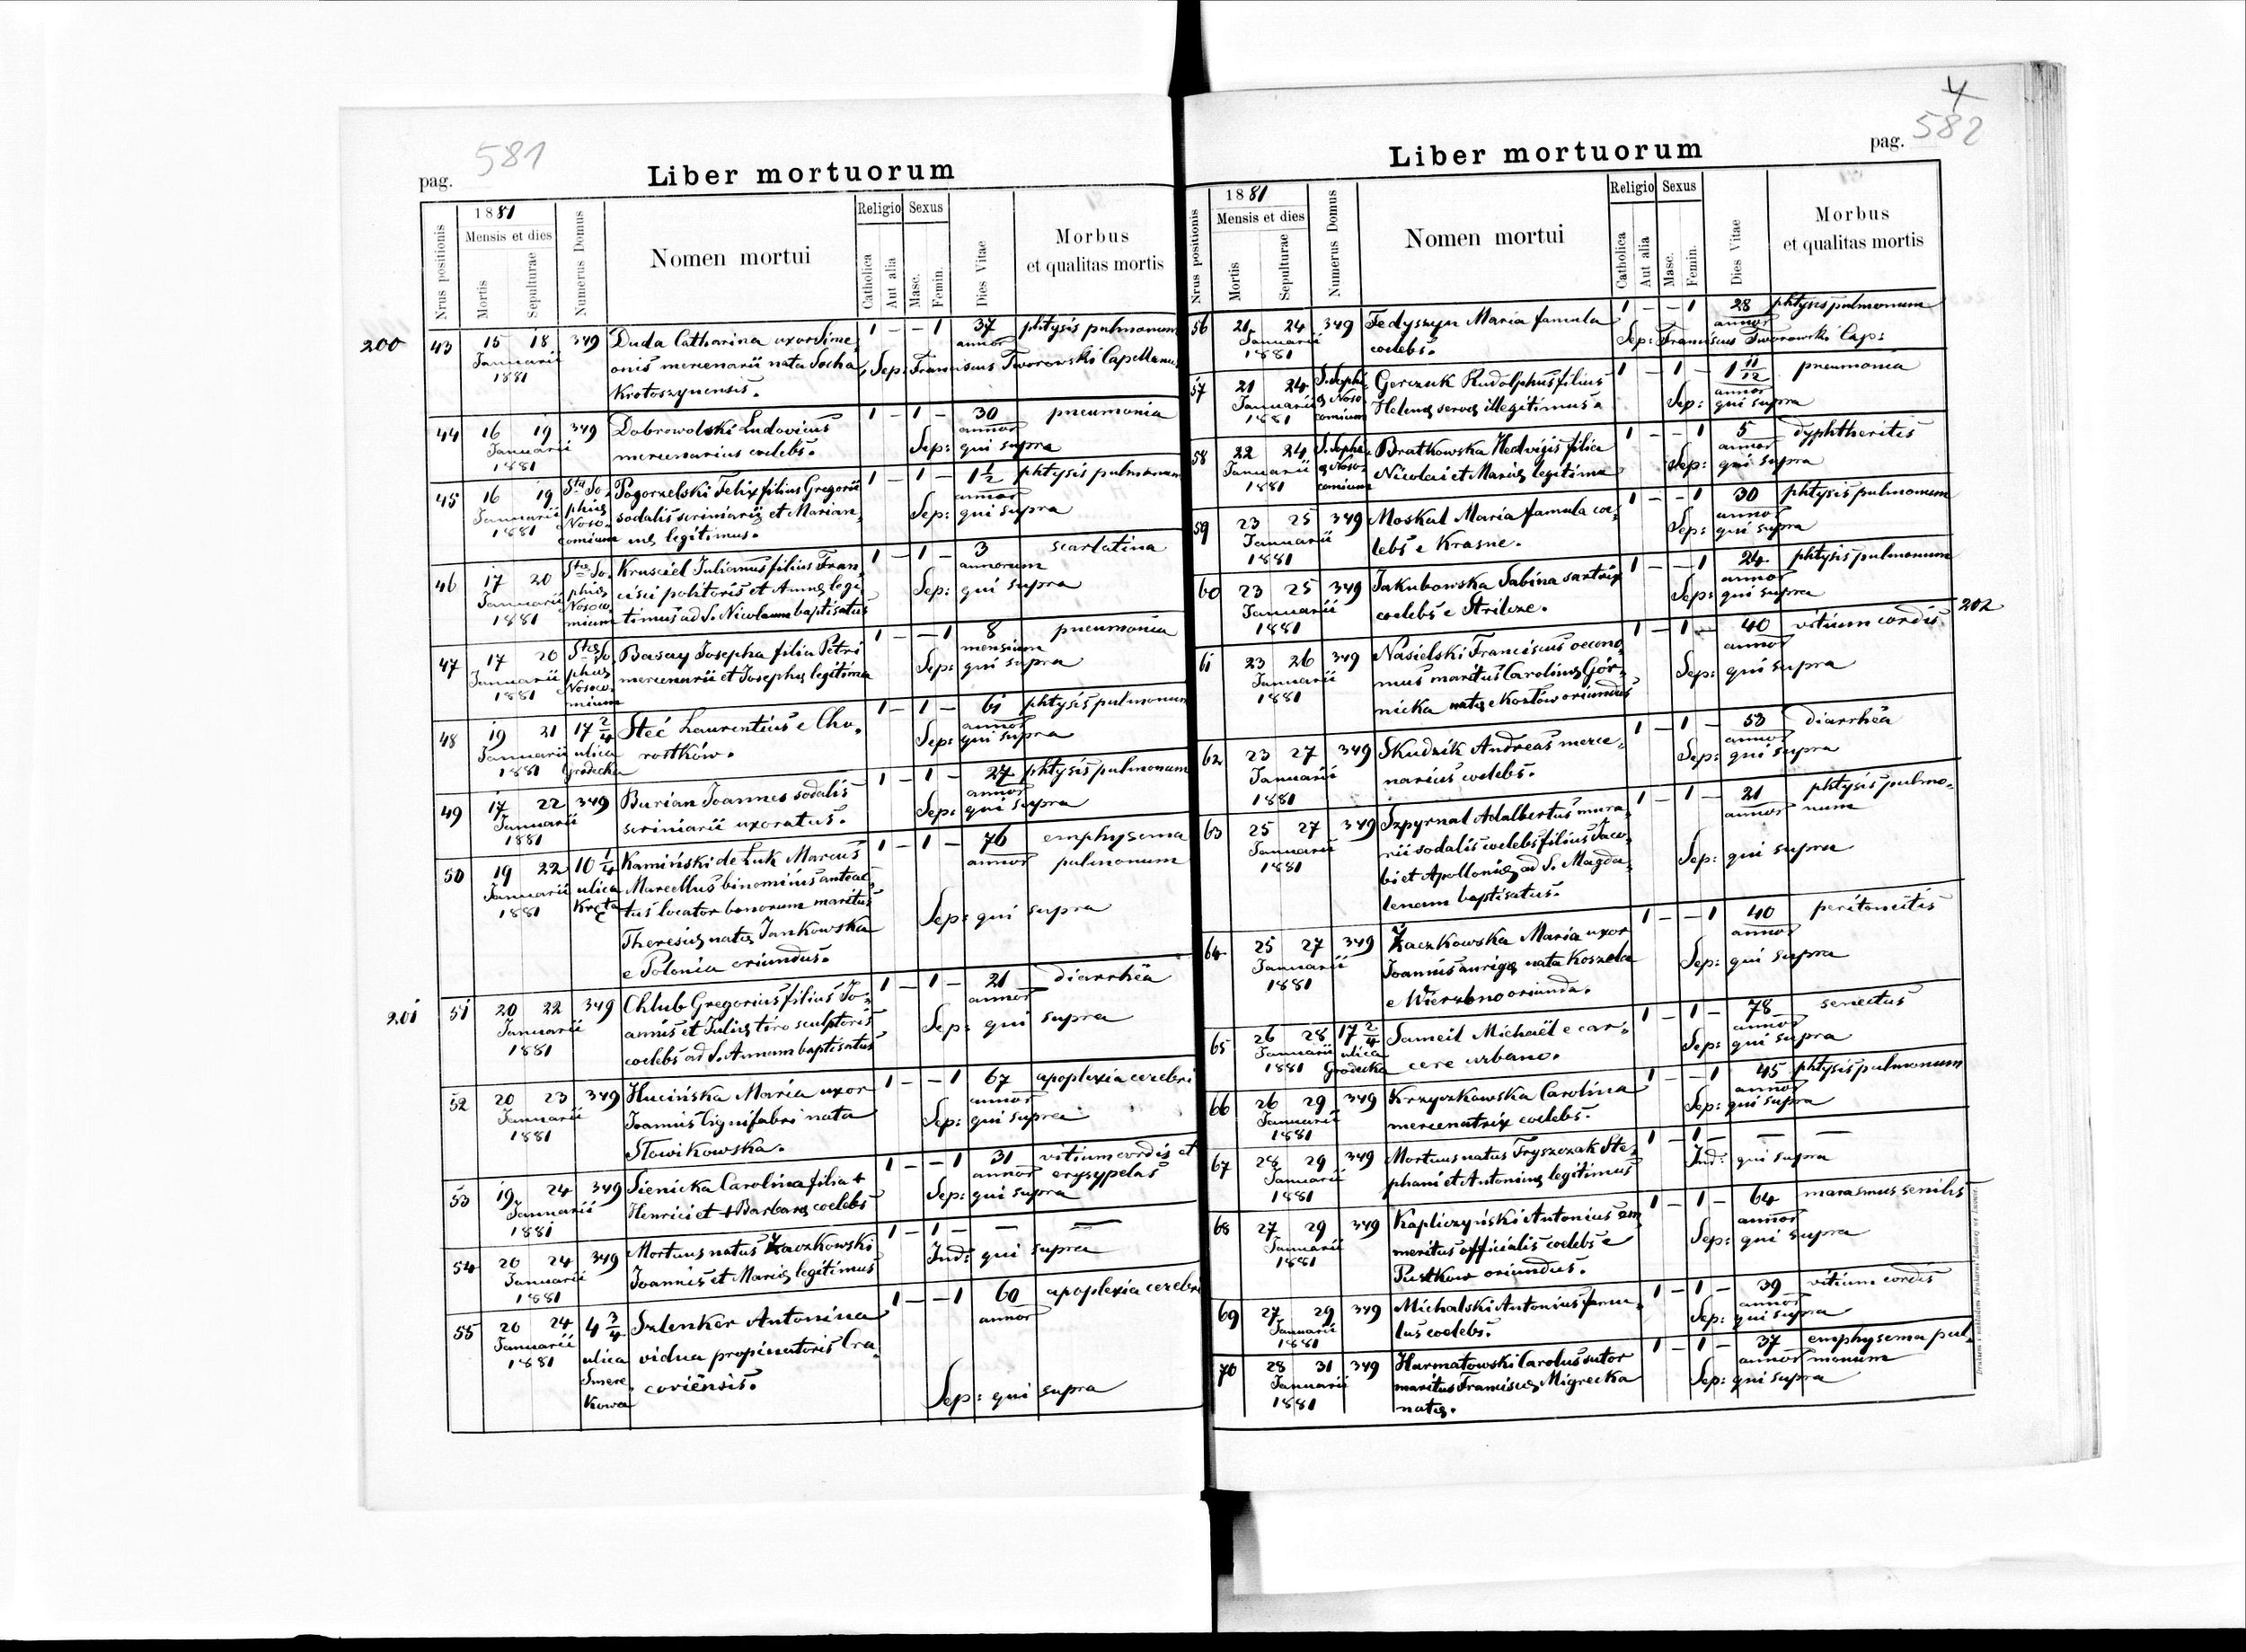 581
pag.
Liber mortuorum
Nrus positionis
1881
Mensis et dies
Mortis
Sepulturae
Numerus Domus
Nomen mortui
Religio
Catholica
Aut alia
Sexus
Masc.
Femin.
Dies Vitae
Morbus
et qualitas mortis
200
43 15 18 349 Duda Catharina uxor Sime- 1 - - 1 37 phtysis pulmonum
Januarii onis mercenarii nata Socha annor
1881 Krotoszynensis. Sep: Franciscus Tworowski Capellanus
44 16 19 349 Dobrowolski Ludovicus 1 - 1 - 30 pneumonia
Januarii mercenarius coelebs. annor
1881 Sep: qui supra
45 16 19 Stae So- Pogorzelski Felix filius Gregorii 1 - 1 - 1 1/2 phtysis pulmonum
Januarii phiae sodalis scriniarii et Marian- annor
1881 Noso- nae legitimus. Sep: qui supra
comium
46 17 20 Stae So- Krusciel Julianus filius Fran- 1 - 1 - 3 scarlatina
Januarii phiae cisci politoris et Annae legi- annorum
1881 Nosoco- timus ad S. Nicolaum baptisatus Sep: qui supra
mium
47 17 20 Stae So- Basay Josepha filia Petri 1 - - 1 8 pneumonia
Januarii phiae mercenarii et Josephae legitima mensium
1881 Nosoco- Sep: qui supra
mium
48 19 21 17 2/4 Steć Laurentius e Cho- 1 - 1 - 61 phtysis pulmonum
Januarii ulica rostków. annor
1881 Grodecka Sep: qui supra
49 17 22 349 Burian Joannes sodalis 1 - 1 - 27 phtysis pulmonum
Januarii scriniarii uxoratus. annor
1881 Sep: qui supra
50 19 22 10 1/4 Kamiński de Łuk Marcus 1 - 1 - 76 emphysema
Januarii ulica Marcellus binominis anteac- annor pulmonum
1881 Kręta tus locator bonorum maritus Sep: qui supra
Theresiae natae Jankowska
e Polonia oriundus.
201
51 20 22 349 Chlub Gregorius filius Jo- 1 - 1 - 21 diarrhëa
Januarii annis et Juliae tiro sculptoris annor
1881 coelebs ad S. Annam baptisatus Sep: qui supra
52 20 23 349 Hucińska Maria uxor 1 - - 1 67 apoplexia cerebri
Januarii Joannis lignifabri nata annor
1881 Słowikowska. Sep: qui supra
53 19 24 349 Sienicka Carolina filia + 1 - - 1 31 vitium cordis et
Januarii Henrici et + Barbarae coelebs annor erysypelas
1881 Sep: qui supra
54 20 24 349 Mortuus natus Żaczkowski 1 - 1 - — —
Januarii Joannis et Mariae legitimus Ind: qui supra
1881
55 20 24 4 3/4 Szlenker Antonina 1 - - 1 60 apoplexia cerebri
Januarii ulica vidua propinatoris Cra- annor
1881 Smere- coviënsis. Sep: qui supra
kowa
4
582
pag.
Liber mortuorum
Nrus positionis
1881
Mensis et dies
Mortis
Sepulturae
Numerus Domus
Nomen mortui
Religio
Catholica
Aut alia
Sexus
Masc.
Femin.
Dies Vitae
Morbus
et qualitas mortis
56 21 24 349 Fedyszyn Maria famula 1 - - 1 28 phtysis pulmonum
Januarii coelebs. annor
1881 Sep: Franciscus Tworowski Cap:
57 21 24 S. Sophi- Gerczuk Rudolphus filius 1 - 1 - 1 11/12 pneumonia
Januarii ae Noso- Helenae servae illegitimus. annor
1881 comium Sep: qui supra
58 22 24 S. Sophi- Bratkowska Hedvigis filia 1 - - 1 5 dyphtheritis
Januarii ae Noso- Nicolai et Mariae legitima annor
1881 comium Sep: qui supra
59 23 25 349 Moskal Maria famula coe- 1 - - 1 30 phtysis pulmonum
Januarii lebs e Krasne. annor
1881 Sep: qui supra
60 23 25 349 Jakubowska Sabina sartrix 1 - - 1 24 phtysis pulmonum
Januarii coelebs e Strilcze. annor
1881 Sep: qui supra
202
61 23 26 349 Nasielski Franciscus oecono- 1 - 1 - 40 vitium cordis
Januarii mus maritus Carolinae Gór- annor
1881 nicka natae e Kozłów oriundus Sep: qui supra
62 23 27 349 Skudzik Andreas merce- 1 - 1 - 53 diarrhëa
Januarii narius coelebs. annor
1881 Sep: qui supra
63 25 27 349 Szpyrnal Adalbertus mura- 1 - 1 - 21 phtysis pulmo-
Januarii rii sodalis coelebs filius Jaco- annor num
1881 bi et Apolloniae ad S. Magda- Sep: qui supra
lenam baptisatus.
64 25 27 349 Żaczkowska Maria uxor 1 - - 1 40 peritoneitis
Januarii Joannis aurigae nata Koszela annor
1881 e Wierzbno oriunda. Sep: qui supra
65 26 28 17 2/4 Sameil Michaël e car- 1 - 1 - 78 senectus
Januarii ulica cere urbano. annor
1881 Grodecka Sep: qui supra
66 26 29 349 Krzyczkowska Carolina 1 - - 1 45 phtysis pulmonum
Januarii mercenatrix coelebs. annor
1881 Sep: qui supra
67 28 29 349 Mortuus natus Tryszczak Ste- 1 - 1 - — —
Januarii phani et Antoninae legitimus Ind: qui supra
1881
68 27 29 349 Kapliczyński Antonius em- 1 - 1 - 64 marasmus senilis
Januarii meritus officialis coelebs e annor
1881 Pustkow oriundus. Sep: qui supra
69 27 29 349 Michalski Antonius famu- 1 - 1 - 39 vitium cordis
Januarii lus coelebs. annor
1881 Sep: qui supra
70 28 31 349 Harmatowski Carolus sutor 1 - 1 - 37 emphysema pul-
Januarii maritus Franciscae Migrecka annor monum
1881 natae. Sep: qui supra